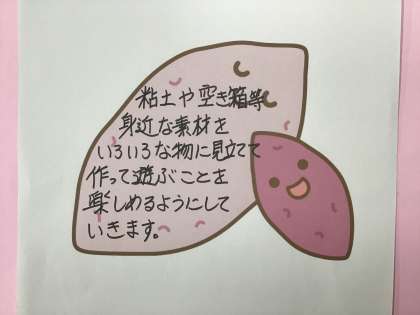 粘土や空き箱等
身近な素材を
いろいろな物に見立てて
作って遊ぶことを
楽しめるようにして
いきます。